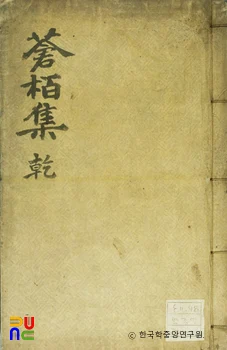 蒼栢集
乾
ⓒ 한국학중앙연구원